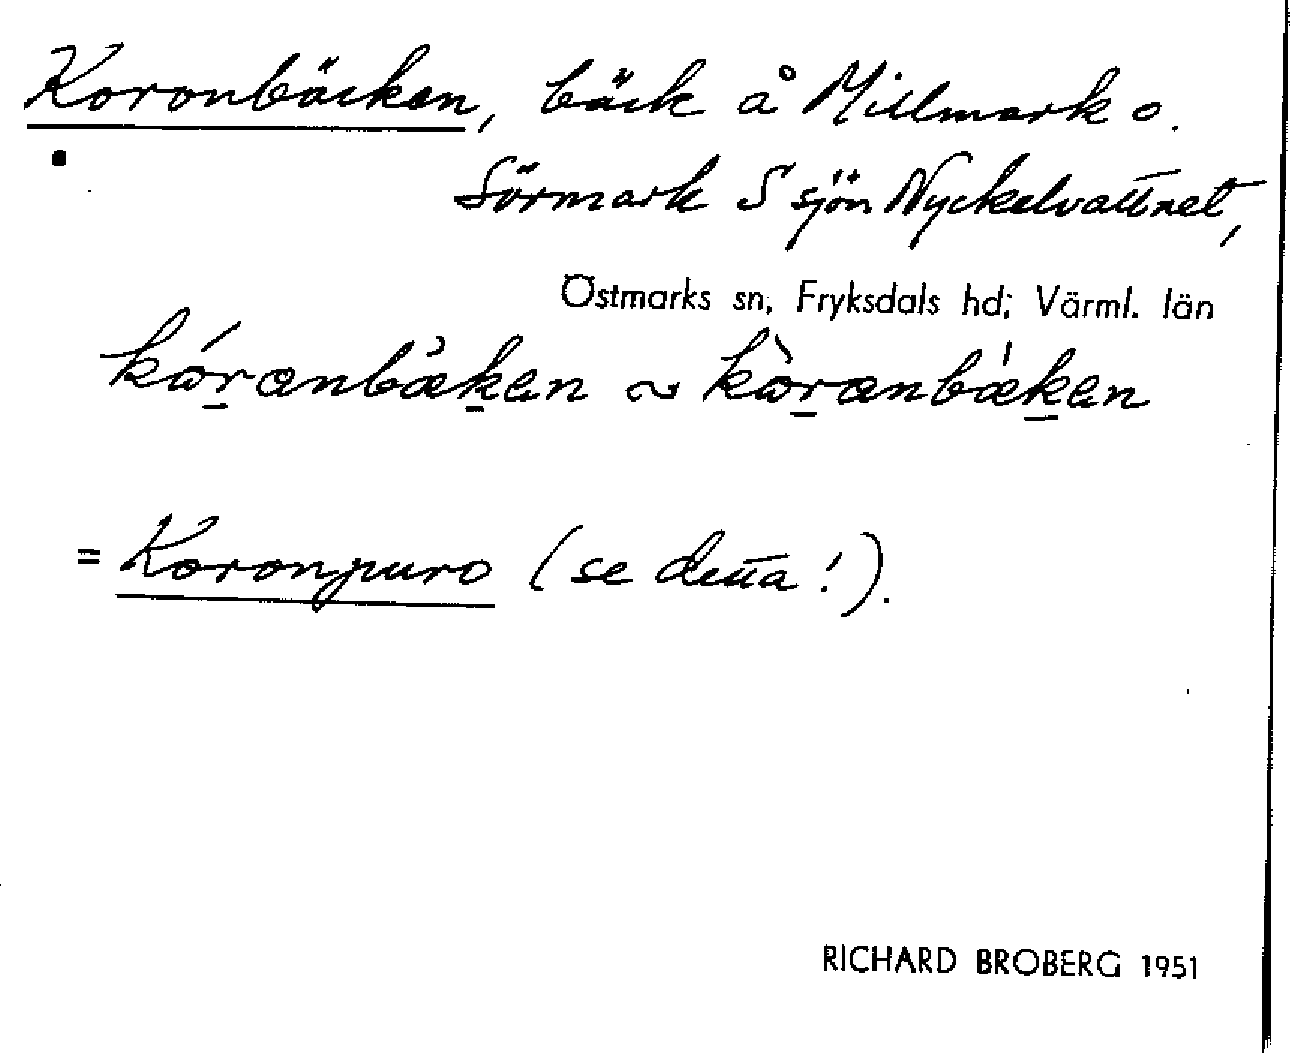 Koronbäcken, bäck å Millmark o.
Sörmark S sjön Nyckelvattnet,
Östmarks sn, Fryksdals hd; Värml. län
kóranbæken ~ kòranbæken
= Koronpuro (se detta!).
RICHARD BROBERG 1951